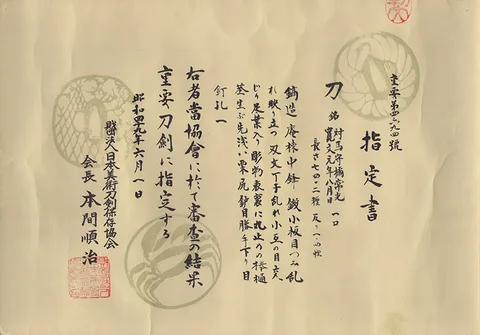 指定書
刀 銘 対馬守橘常光 一口
寛文元年八月日
鎬造 庵棟 中鋒 鍛小板目つみ乱
れ映り立つ 刃文丁子乱れ小互の目交
じり足葉入り 彫物表裏に丸止めの棒樋
茎生ぶ先浅い栗尻 鑢目勝手下り 目
釘孔一
右者當協會に於て審査の結果
重要刀剣に指定する
昭和四九年六月一日
財團法人日本美術刀剣保存協会
会長 本間順治